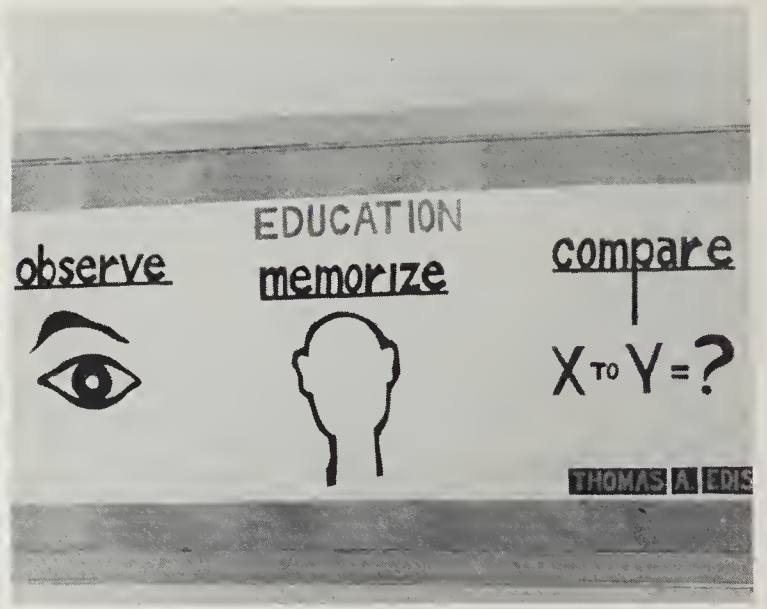 EDUCATION
observe memorize compare
X TO Y = ?
THOMAS A. EDIS